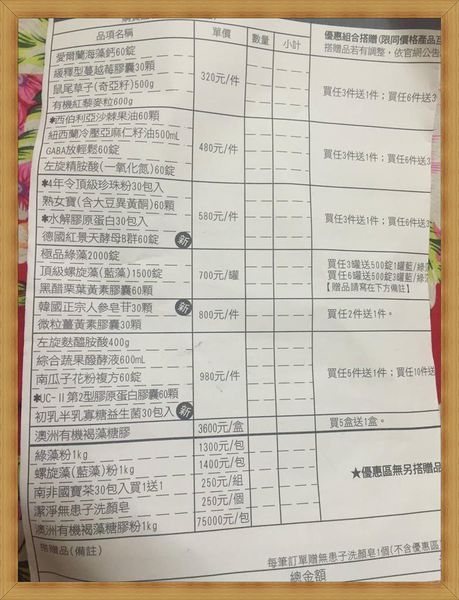 品項名稱 單價 數量 小計 優惠組合搭贈(限同價格產品互
搭贈品若有調整，依官網公告
愛爾蘭海藻鈣60錠
緩釋型蔓越莓膠囊30顆
鼠尾草子(奇亞籽)500g
有機紅藜麥粒600g
320元/件 買任3件送1件；買任6件送3
✱西伯利亞沙棘果油60顆
紐西蘭冷壓亞麻仁籽油500mL
GABA放輕鬆60錠
左旋精胺酸(一氧化氮)60錠
480元/件 買任3件送1件；買任6件
✱4年令頂級珍珠粉30包入
熟女寶(含大豆異黃酮)60顆
✱水解膠原蛋白30包入
德國紅景天酵母B群60錠 新
580元/件 買任3件送1件；買任6件送
極品綠藻2000錠
頂級螺旋藻(藍藻)1500錠
黑醋栗葉黃素膠囊60顆
700元/罐 買任3罐送500錠1罐藍/綠
買任6罐送500錠3罐藍/綠
【贈品請寫在下方備註】
韓國正宗人參皂苷30顆 新
微粒薑黃素膠囊30顆
800元/件 買任2件送1件。
左旋麩醯胺酸400g
綜合蔬果醱酵液600mL
南瓜子花粉複方60錠
✱UC-II第2型膠原蛋白膠囊60顆
初乳半乳寡糖益生菌30包入 新
980元/件 買任5件送1件；買任10件送
澳洲有機褐藻糖膠 3600元/盒 買5盒送1盒。
綠藻粉1kg 1300元/包
螺旋藻(藍藻)粉1kg 1400元/包
南非國寶茶30包入買1送1 250元/組
潔淨無患子洗顏皂 250元/個
澳洲有機褐藻糖膠粉1kg 75000元/包
★優惠區無另搭贈品
搭贈品(備註)
每筆訂單贈無患子洗顏皂1個(不含優惠區
總金額